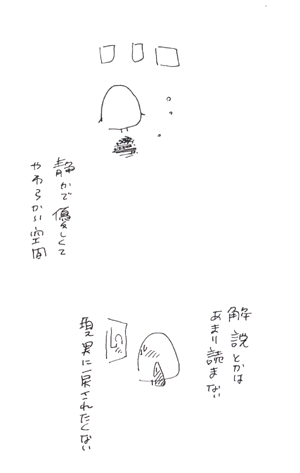 静かで優しくて
やわらかい空間
解説とかは
あまり読まない
現実に戻されたくない